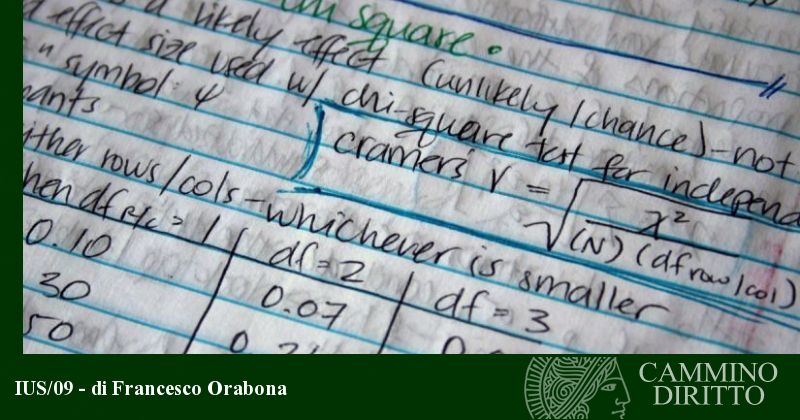 square.
a likely effect (unlikely / chance) - not
effect size used w/ chi-square test for independ
symbol: φ
ants
cramers V = √ χ² / (N) (df row/col)
ither rows/cols - whichever is smaller
hen df R/C = 1 | df = 2 | df = 3
0.10 | 0.07
30
50
IUS/09 - di Francesco Orabona
CAMMINO
DIRITTO